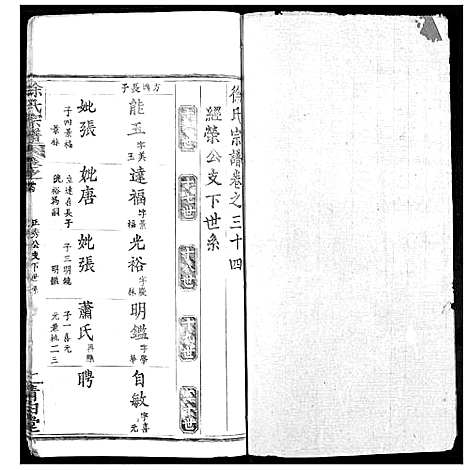 徐氏宗譜卷之三十四
經榮公支下世系
方四長子
能五 字美玉
達福 字景福
光裕 字慶林
明鑑 字學華
自敏 字喜元
妣張 子四景福 景林
妣唐 立達召長子 光裕為嗣
妣張 子三明鏡 明鑑
蕭氏 子一喜元 元兼祧二三
聘
徐氏宗譜
正秀公支下世系